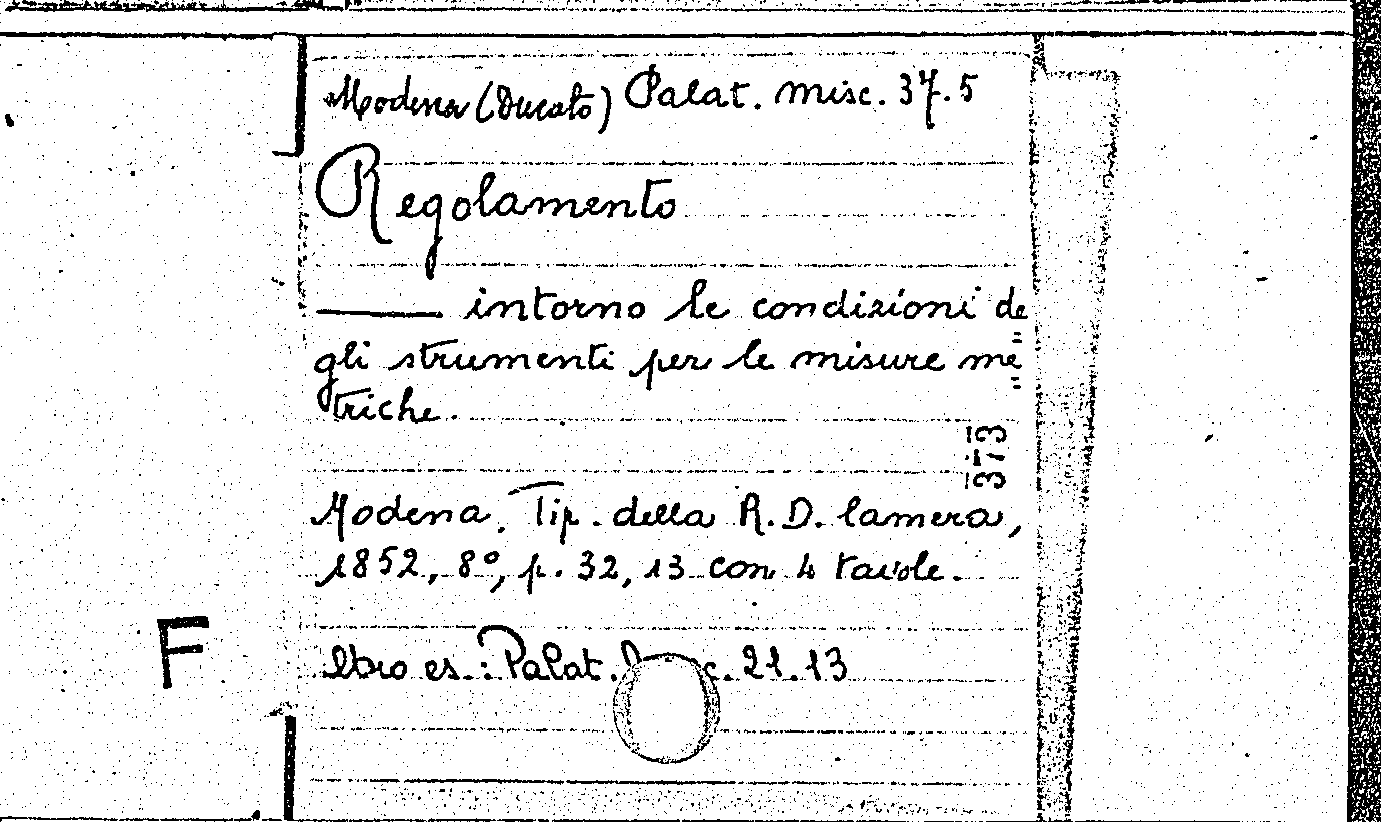 Modena (Ducato) Palat. misc. 37.5
Regolamento
——— intorno le condizioni de=
gli strumenti per le misure me=
triche.
373
Modena, Tip. della R. D. Camera,
1852, 8º, p. 32, 13 con 4 tavole.
Altro es.: Palat. c. 21.13
F